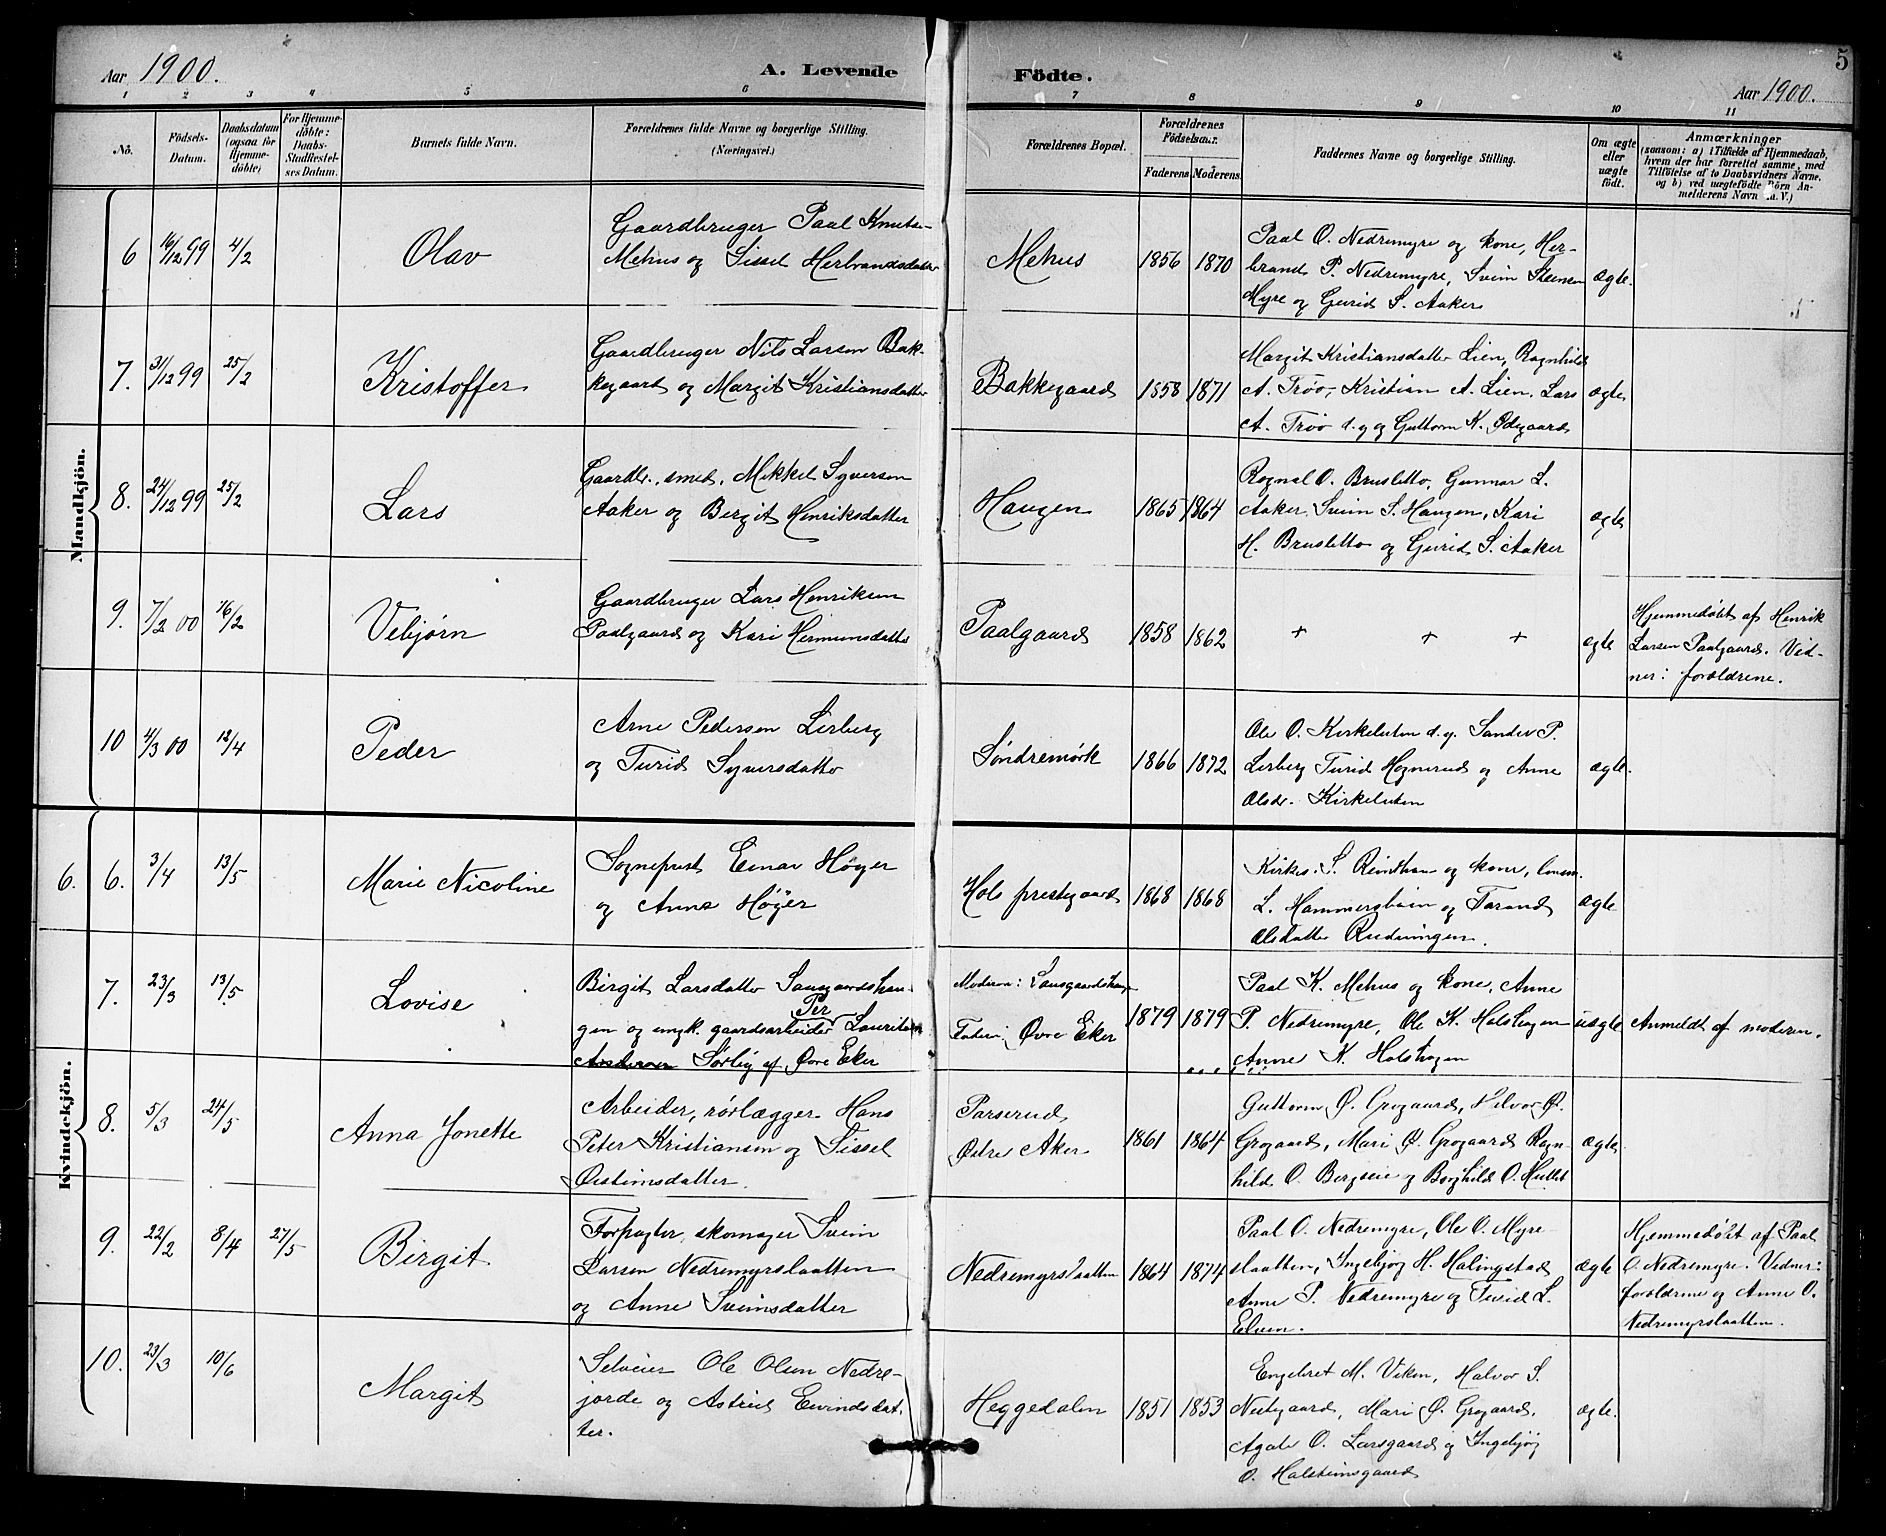 5
Aar 1900.
A. Levende Födte.
Aar 1900.
1 2 3 4 5 6 7 8 9 10 11
No.
Födsels-
Datum.
Daabsdatum
(ogsaa for
Hjemme-
döbte)
For Hjemme-
döbte:
Daabs-
Stadfæstel-
ses Datum.
Barnets fulde Navn.
Forældrenes fulde Navne og borgerlige Stilling.
(Næringsvei.)
Forældrenes Bopæl.
Forældrenes
Födselsaar.
Faderens
Moderens
Faddernes Navne og borgerlige Stilling.
Om ægte
eller
uægte
født.
Anmærkninger
(saasom: a) i Tilfælde af Hjemmedaab,
hvem der har forrettet samme, med
Tilföielse af to Daabsvidners Navne,
og b) ved uægtefödte Börn An-
melderens Navn
Mandkjön.
6 16/12 99 4/2
Olav
Gaardbruger Paal Knuts-
Mehus og Sissel Herbrandsdatter
Mehus
1856 1870
Paal O. Nedremyre og kone, Her-
brand P. Nedremyre, Svein Steensen
Myre og Gurid S. Aaker
ægte.
7. 31/12 99 25/2
Kristoffer
Gaardbruger Nils Larsen Bak-
kegaard og Margit Kristiansdatter
Bakkegaard
1858 1871
Margit Kristiansdatter Lien, Ragnhild
A. Trøo, Kristian A. Lien, Lars
A. Trøo d.y. og Guttorm K. Ødegaard
ægte
8. 24/12 99 25/2
Lars
Gaardbr., smed, Mikkel Syversen
Aaker og Bergit Henriksdatter
Haugen
1865 1864
Ragnal O. Brusletto, Gunnar L.
Aaker, Svein S. Haugen, Kari
H. Brusletto og Gurid S. Aaker
ægte
9. 7/2 00 16/2
Vebjørn
Gaardbruger Lars Henriksen
Paalgaard og Kari Hermunsdatter
Paalgaard
1858 1862
+ + +
ægte
Hjemmedøbt af Henrik
Larsen Paalgaard. Vid-
ner: forældrene.
10 4/3 00 12/4
Peder
Arne Pedersen Lerberg
og Turid Syversdatter
Søndremørk
1866 1872
Ole O. Kirkeluten d.y. Sander P.
Lerberg Turid Hognerud og Anne
Olsdr. Kirkeluten
ægte.
Kvindekjön.
6. 6. 3/4 13/5
Marie Nicoline
Sogneprest Einar Høyer
og Anna Høyer
Hols prestegaard
1868 1868
Kirkes. S. Reinthon og kone,
L. Hammersbøen og Tarand
Olsdatter Rudningen.
ægte
7. 23/3 13/5
Lovise
Birgit Larsdatter Sausgaardshau-
Per
gen og ungk. gaardsarbeider Lauritsen
Sørlig af Øvre Eker
Moderen: Sausgaardshaugen
Faderen: Øvre Eker
1879 1879
Paal K. Mehus og kone, Anne
P. Nedremyre, Ole K. Holshagen
Anne K. Holshagen
uægte
Anmeldt af moderen.
8. 5/3 24/5
Anna Jonette
Arbeider, rørlægger Hans
Peter Kristiansen og Sissel
Østeinsdatter.
Parserud,
Østre Aker
1861 1864
Guttorm Ø. Grøgaard, Halvor Ø.
Grøgaard, Mari Ø. Grøgaard Ragn-
hild O. Bergseie og Borghild O. Hullet
ægte
9. 22/2 8/4 27/5
Birgit
Forpagter, skomager Svein
Larsen Nedremyrslaatten
og Anne Sveinsdatter
Nedremyrslaatten
1864 1874
Paal O. Nedremyre, Ole O. Myre-
slaatten, Ingebjøg H. Halingstad
Anne P. Nedremyre og Turid L.
Elven.
ægte
Hjemmedøbt af Paal
O. Nedremyre. Vidner:
forældrene og Anne O.
Nedremyrslaatten.
10. 23/3 10/6
Margit
Selveier Ole Olsen Nedre-
jorde og Astrid Eivindsdat-
ter.
Heggedalen
1851 1853
Engebret M. Viken, Halvor S.
Nestegaard, Mari Ø. Grøgaard,
Agate O. Larsgaard og Ingebjøg
O. Halsteinsgaard
ægte.